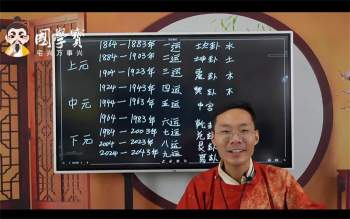 國學寶
1864—1883年 一运 坎卦 水
1884—1903年 二运 坤卦 土
上元
1904—1923年 三运 震卦 木
1924—1943年 四运 巽卦 木
中元 1944—1963年 五运 中宫
1964—1983年 六运 乾卦
下元 1984—2003年 七运 兑卦
2004—2023年 八运 艮卦
2024—2043年 九运 离卦